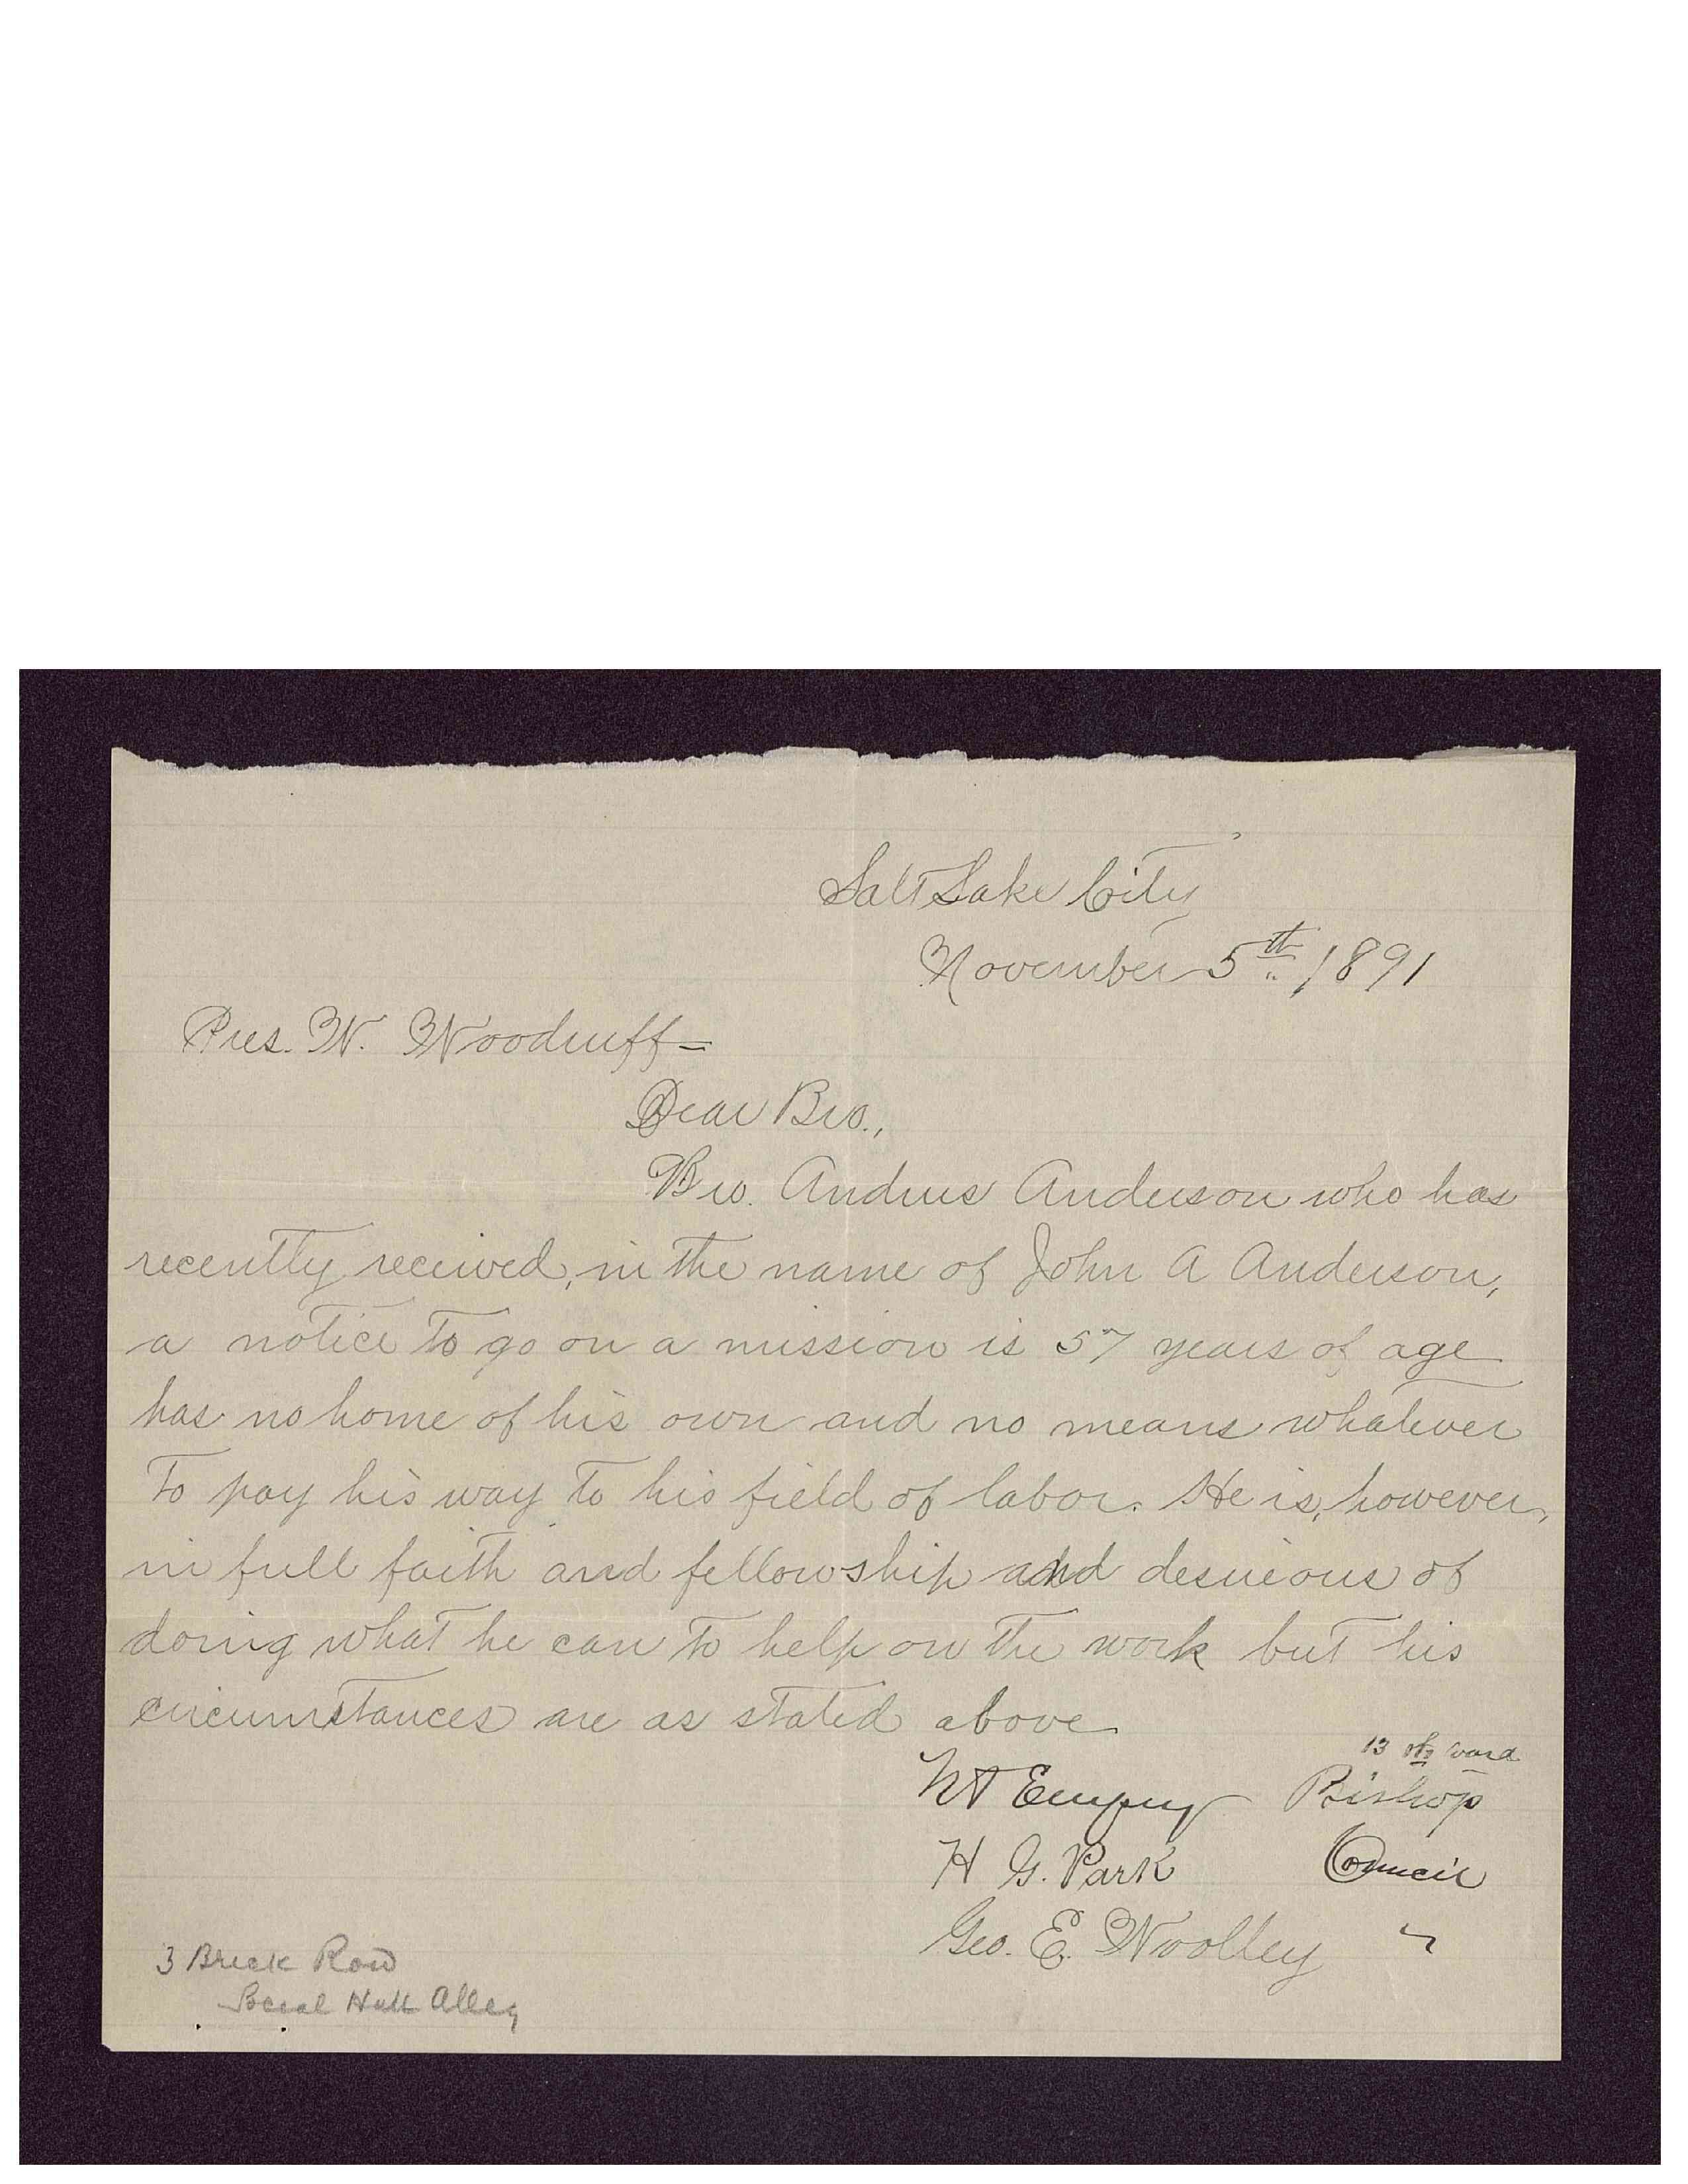 Salt Lake City
November 5th 1891
Pres. W. Woodruff=
Dear Bro.,
Bro. Andrus Anderson who has
recently received, in the name of John A Anderson,
a notice to go on a mission is 57 years of age
has no home of his own and no means whatever
to pay his way to his field of labor. He is, however,
in full faith and fellowship and desireous of
doing what he can to help on the work but his
circumstances are as stated above
13th ward
N A Empey Bishop
H G. Park Council
Geo. E. Woolley "
3 Brick Row
Social Hall Alley